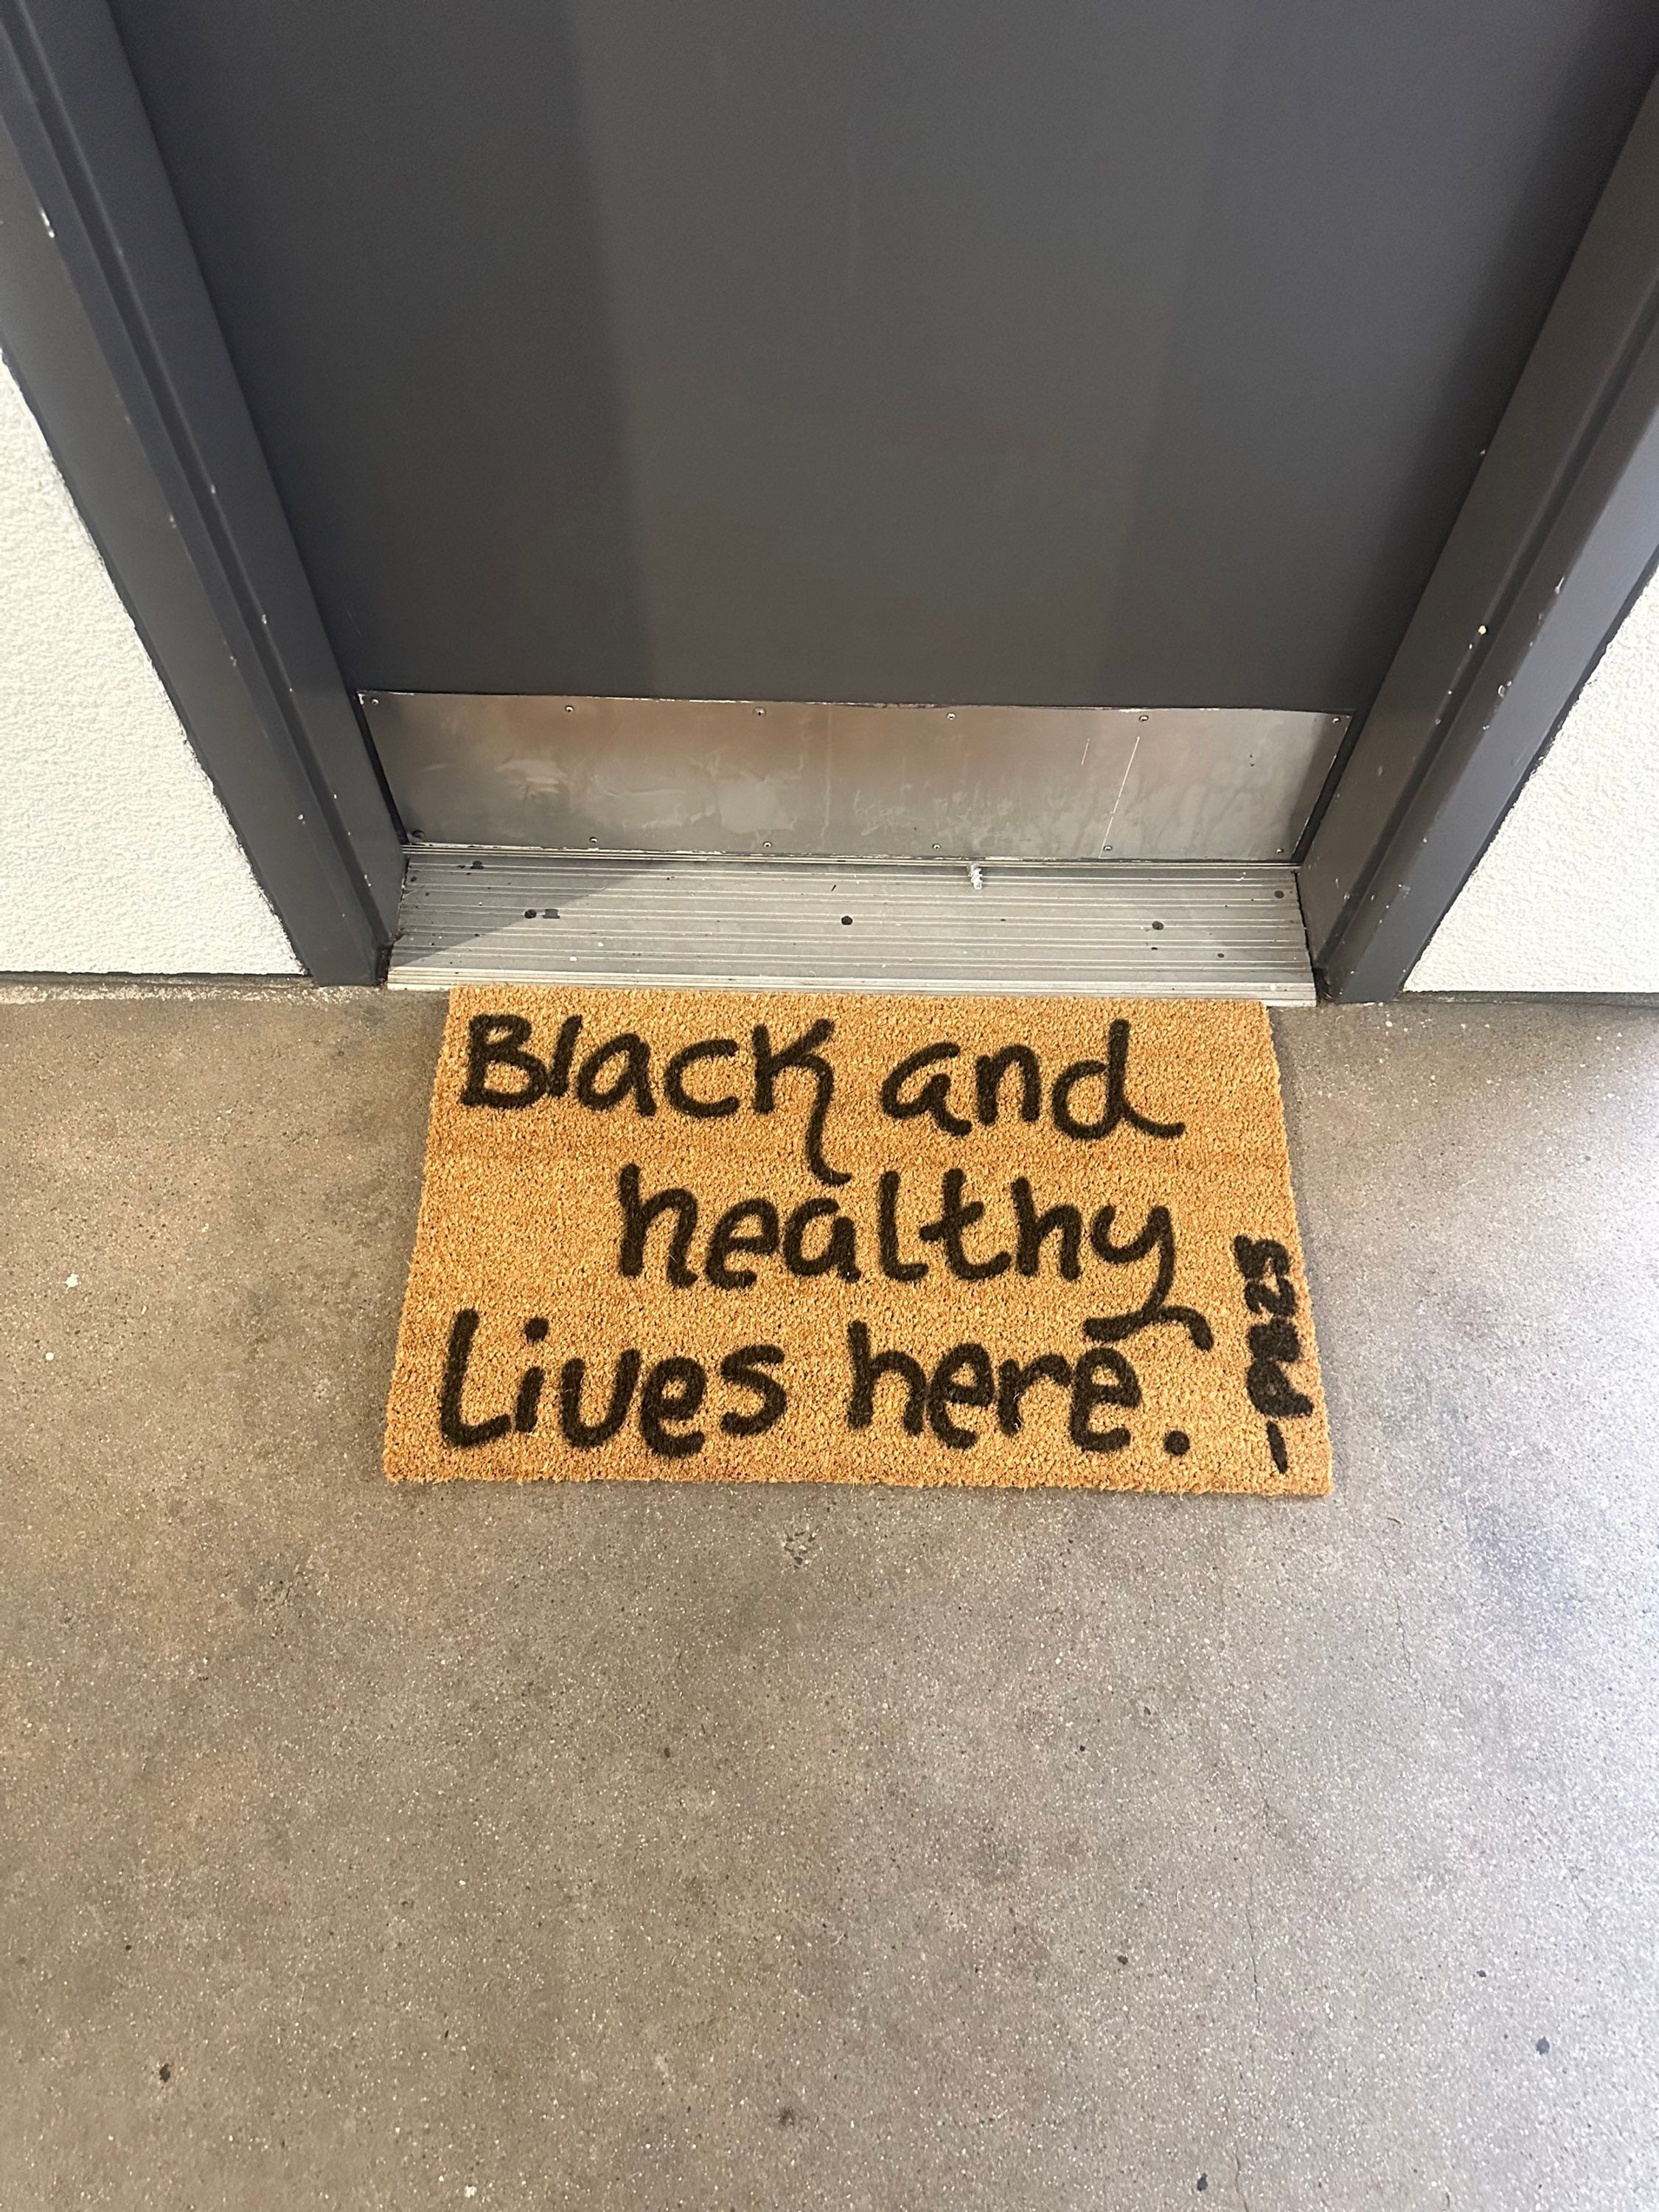 Black and
healthy
Lives here.